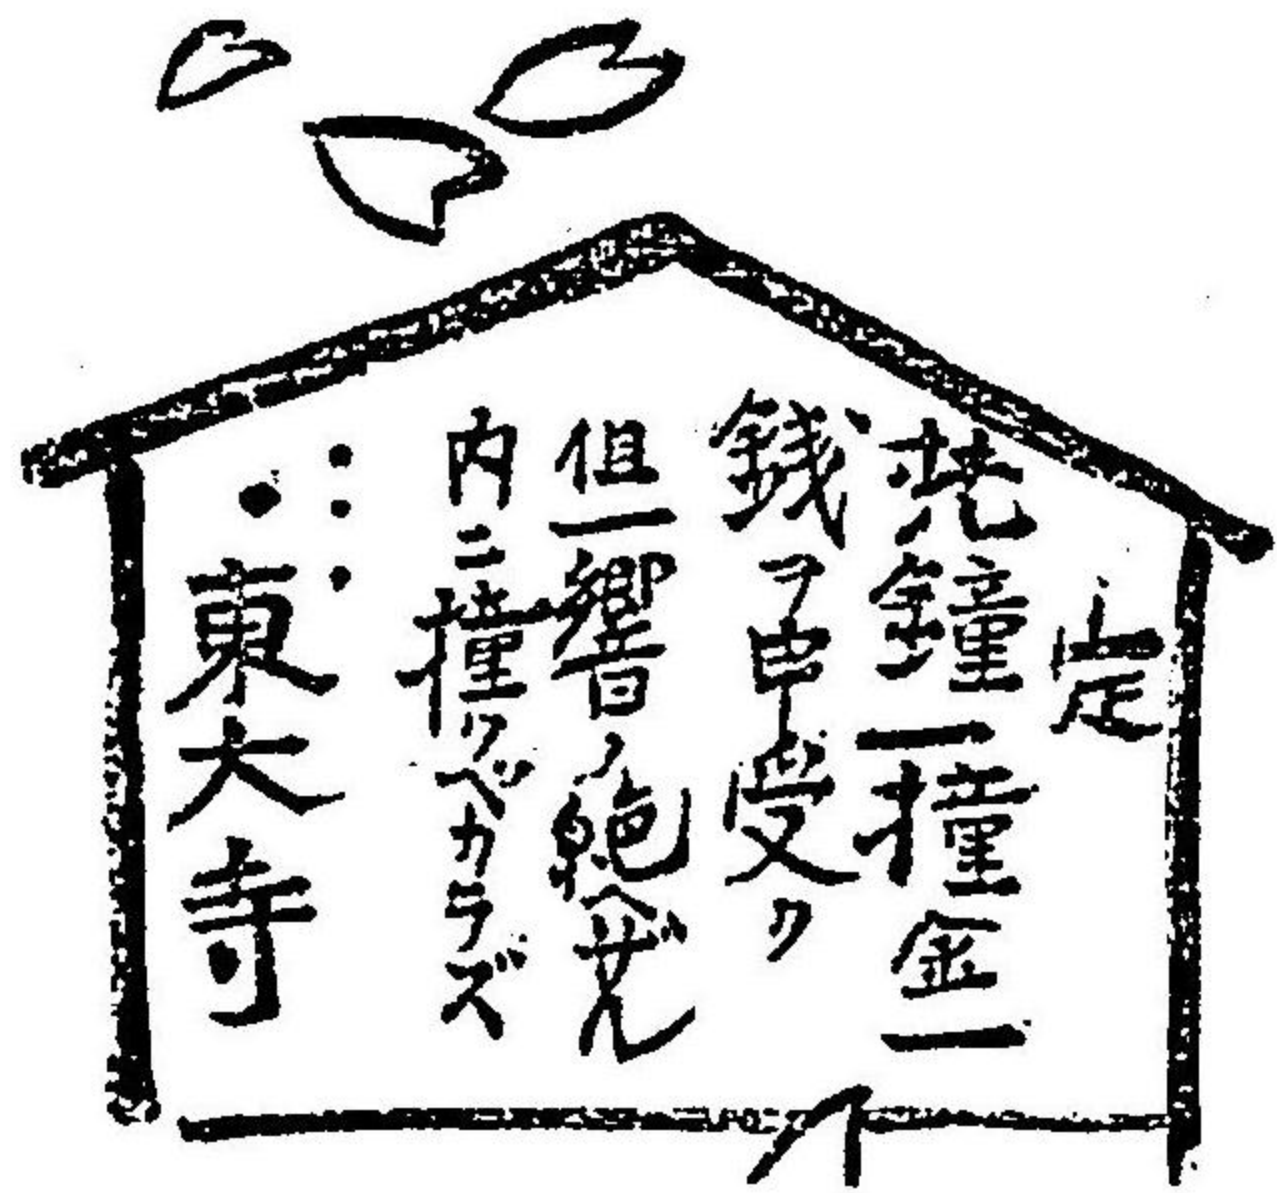 定
此鐘一撞金一
銭ヲ申受ク
但一響ノ絶ヘザル
内ニ撞クベカラズ
・・・
・東大寺